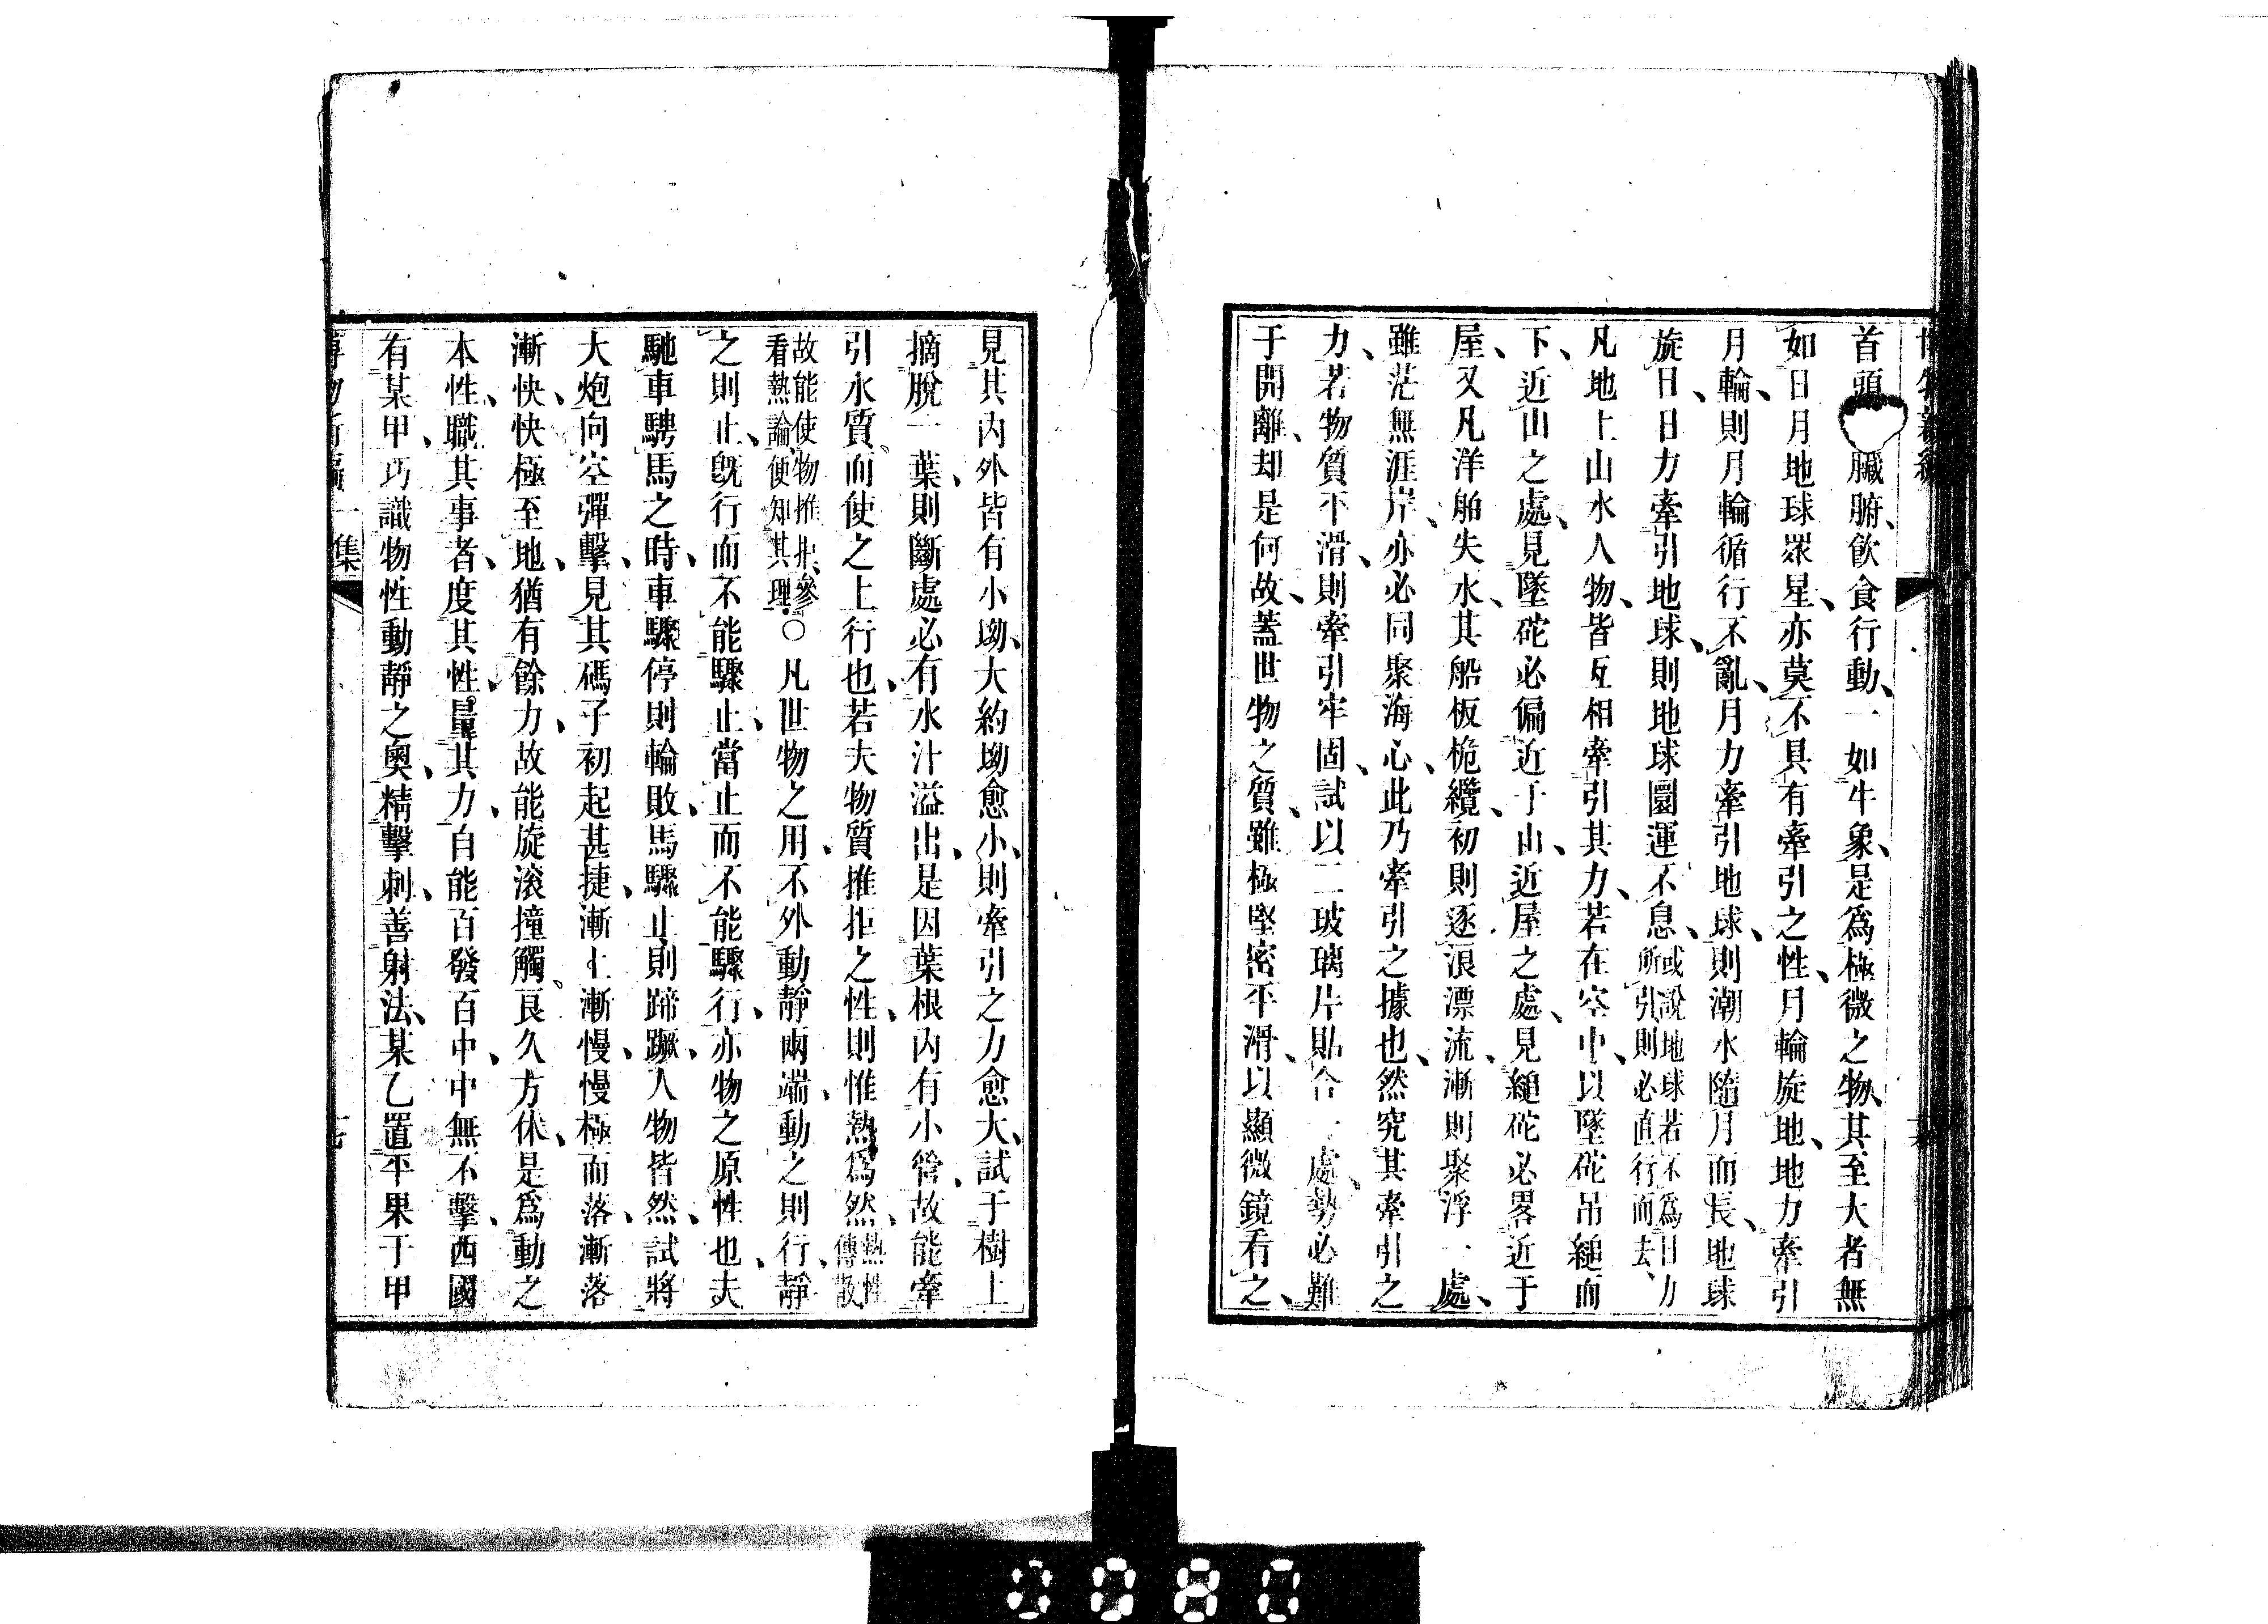 首頭臟腑、飲食行動、一如牛象、是爲極微之物、其至大者無
如日月地球眾星、亦莫不具有牽引之性、月輪旋地、地力牽引
月輪、則月輪循行不亂、月力牽引地球、則潮水隨月而長、地球
旋日、日力牽引地球、則地球圜運不息、或說地球若不爲日力所引則必直行而去、
凡地上山水人物、皆互相牽引其力、若在空中、以墜砣吊縋而
下、近山之處、見墜砣必偏近于山、近屋之處、見縋砣必畧近于
屋、又凡洋舶失水、其船板桅纜、初則逐浪漂流、漸則聚浮一處、
雖茫無涯岸、亦必同聚海心、此乃牽引之據也、然究其牽引之
力、若物質平滑、則牽引牢固、試以二玻璃片貼合一處、勢必難
于開離、却是何故、蓋世物之質、雖極堅密平滑、以顯微鏡看之、
見其內外皆有小坳、大約坳愈小、則牽引之力愈大、試于樹上
摘脫一葉、則斷處必有水汁溢出、是因葉根內有小管、故能牽
引水質、而使之上行也、若夫物質推拒之性、則惟熱爲然、熱性傳散
故能使物推拒、參看熱論、便知其理、○凡世物之用、不外動靜兩端、動之則行、靜
之則止、旣行而不能驟止、當止而不能驟行、亦物之原性也、夫
馳車騁馬之時、車驟停則輪敗、馬驟止則蹄蹶、人物皆然、試將
大炮向空彈擊、見其碼子初起甚捷、漸上漸慢、慢極而落、漸落
漸快、快極至地、猶有餘力、故能旋滚撞觸、良久方休、是爲動之
本性、職其事者、度其性、量其力、自能百發百中、中無不擊、西國
有某甲、巧識物性動靜之奧、精擊刺、善射法、某乙置平果于甲
一集